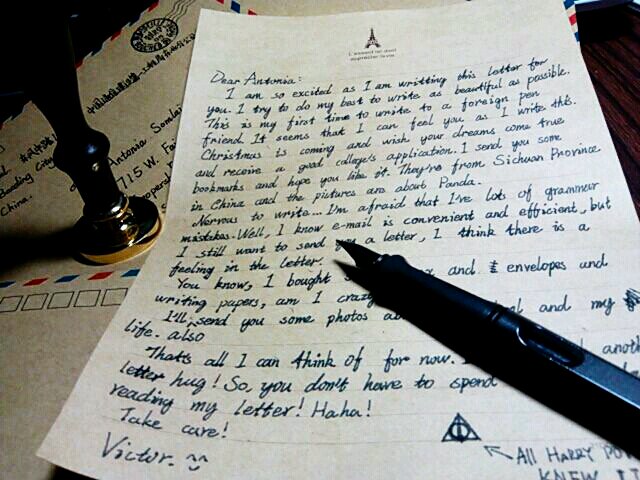 Dear Antonia:
I am so excited as I am writting this letter for
you. I try to do my best to write as beautiful as possible.
This is my first time to write to a foreign pen
friend. It seems that I can feel you as I write this.
Christmas is coming and wish your dreams come true
and receive a good college's application. I send you some
bookmarks and hope you like it. They're from Sichuan Province
in China and the pictures are about Panda.
Nervous to write... I'm afraid that I've lots of grammar
mistakes. Well, I know e-mail is convenient and efficient, but
I still want to send a letter, I think there is a
feeling in the letter.
You know, I bought and envelopes and
writing papers, am I crazy
I'll send you some photos and my
life. also
Thats all I can think of for now.
letter hug! So, you don't have to spend
reading my letter! Haha!
Take care!
Victor.
All HARRY
KNEW
Antonia
715 W.
China.